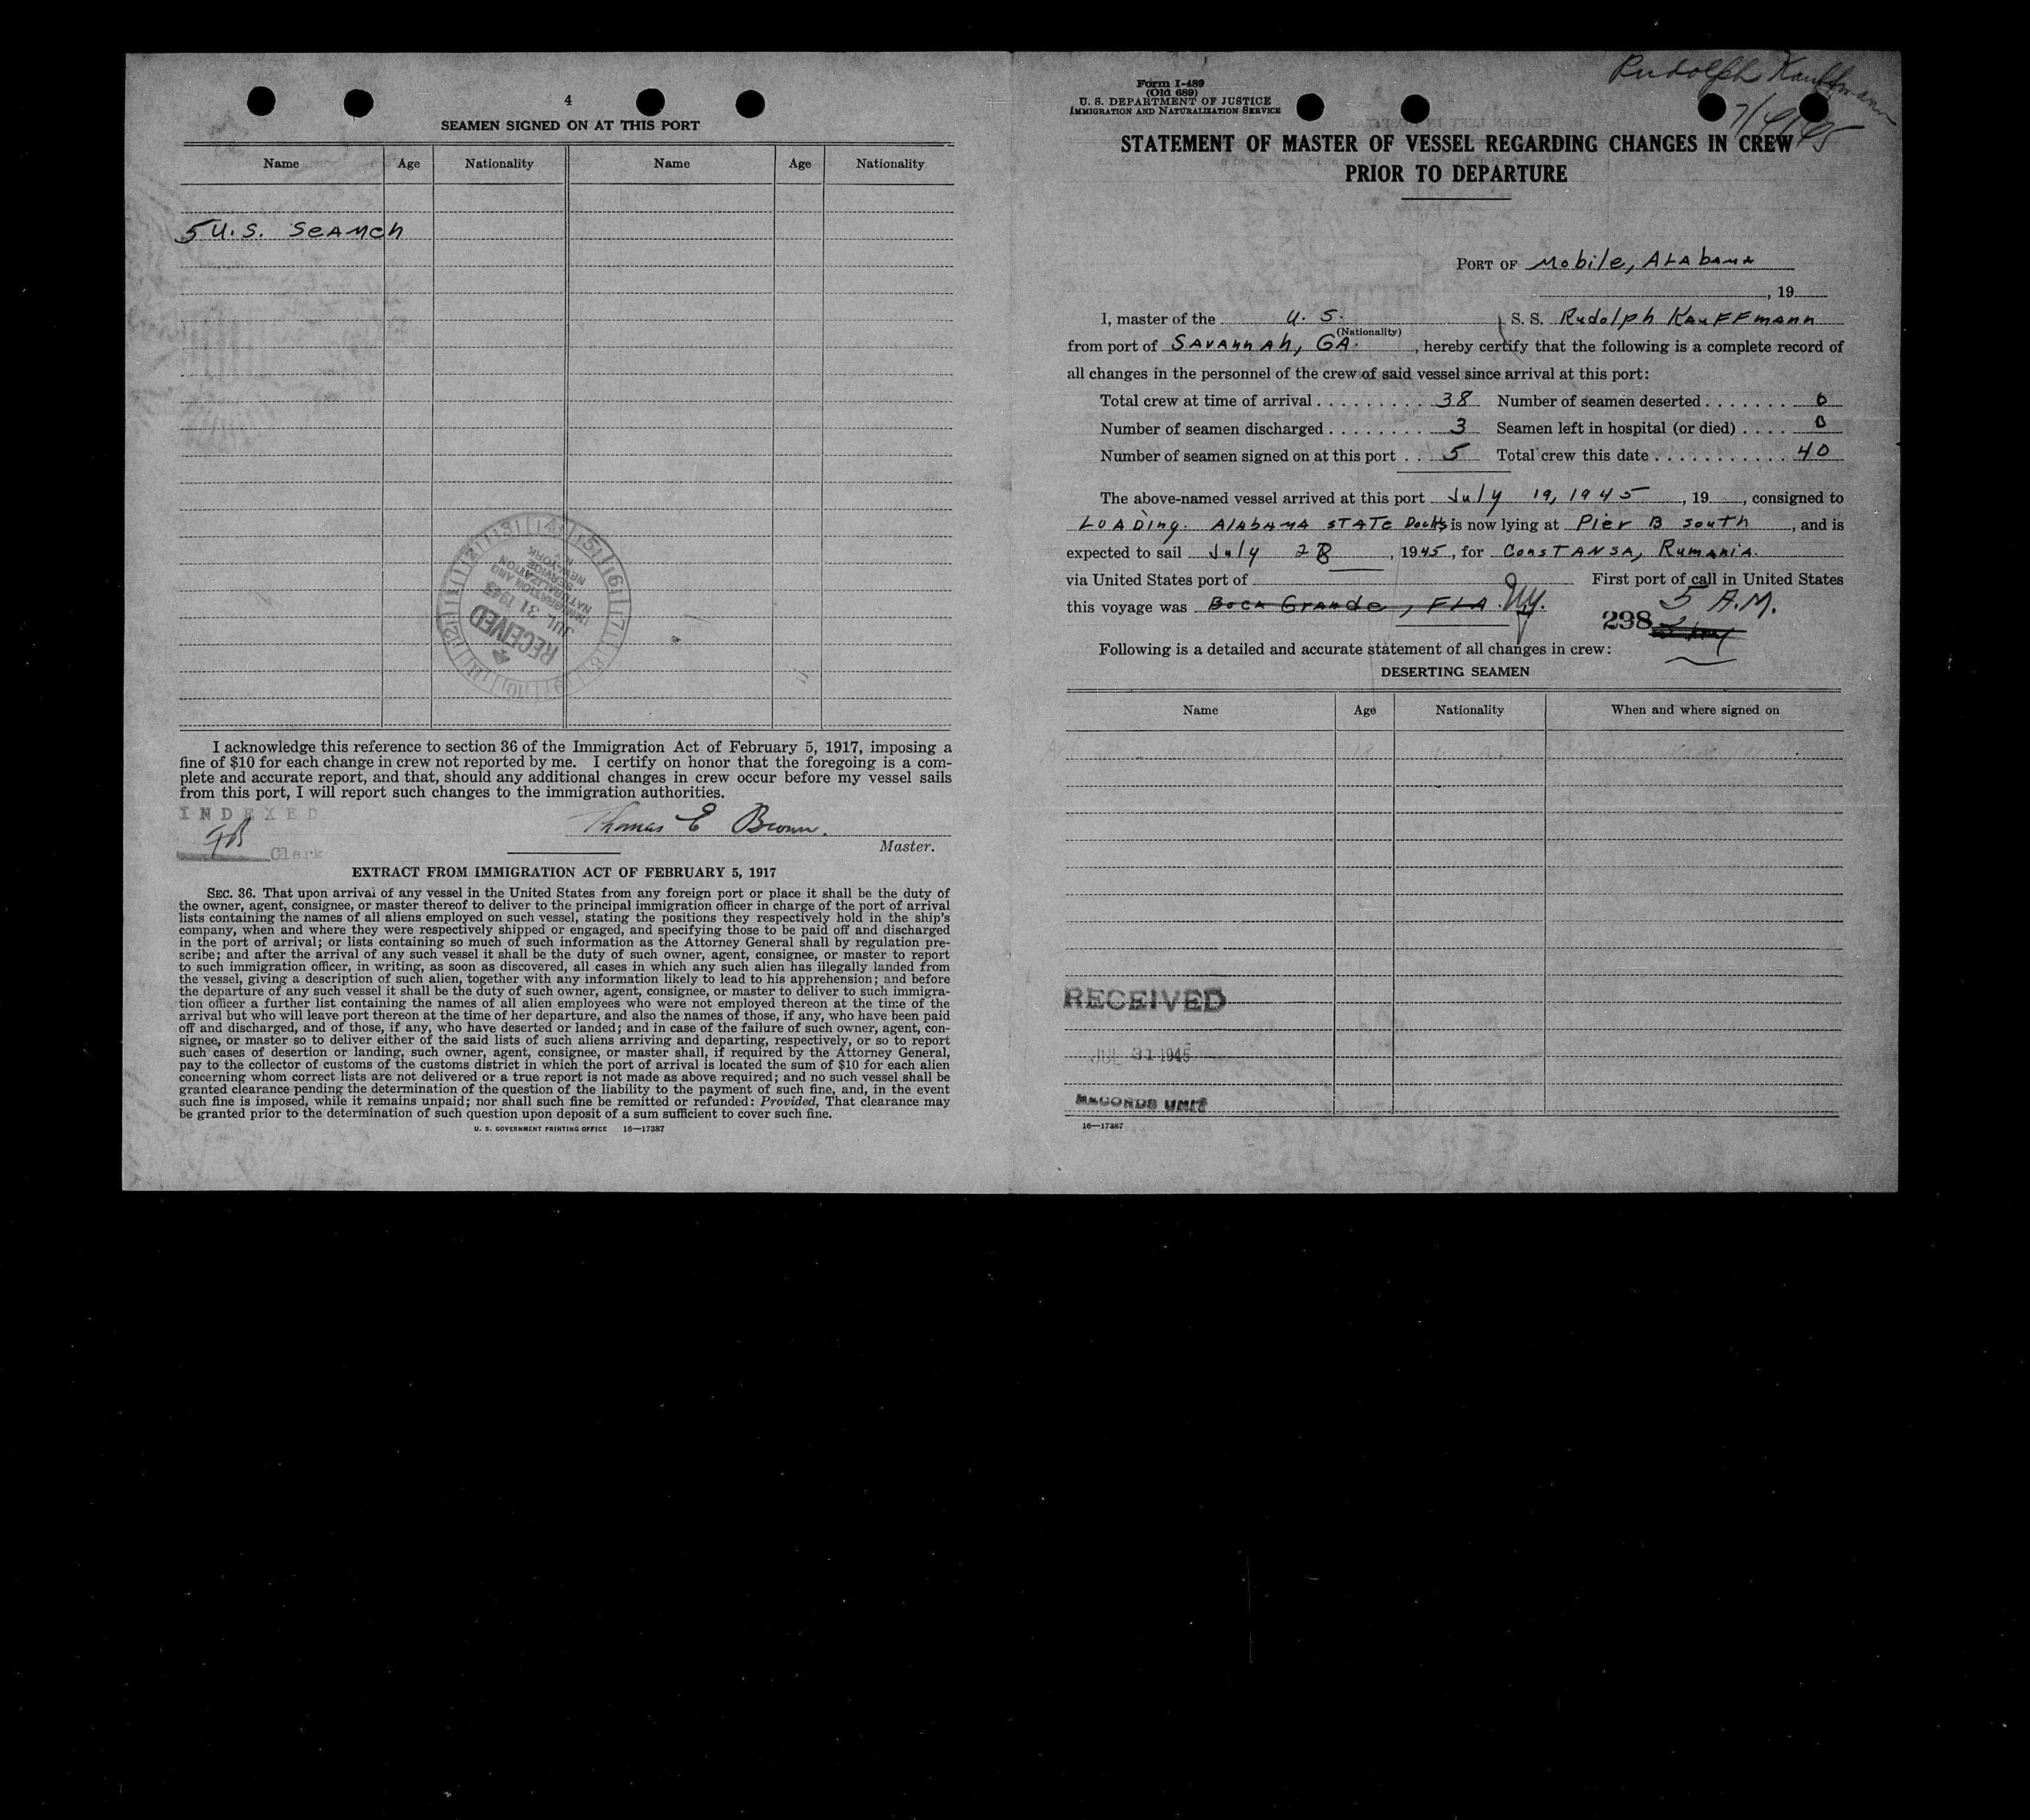 4
SEAMEN SIGNED ON AT THIS PORT
Name Age Nationality Name Age Nationality
5 U.S. Seamen
RECEIVED
JUL 31 1945
IMMIGRATION AND
NATURALIZATION
SERVICE
NEW YORK
I acknowledge this reference to section 36 of the Immigration Act of February 5, 1917, imposing a
fine of $10 for each change in crew not reported by me. I certify on honor that the foregoing is a com-
plete and accurate report, and that, should any additional changes in crew occur before my vessel sails
from this port, I will report such changes to the immigration authorities.
INDEXED
Clerk
Thomas E Brown.
Master.
EXTRACT FROM IMMIGRATION ACT OF FEBRUARY 5, 1917
SEC. 36. That upon arrival of any vessel in the United States from any foreign port or place it shall be the duty of
the owner, agent, consignee, or master thereof to deliver to the principal immigration officer in charge of the port of arrival
lists containing the names of all aliens employed on such vessel, stating the positions they respectively hold in the ship's
company, when and where they were respectively shipped or engaged, and specifying those to be paid off and discharged
in the port of arrival; or lists containing so much of such information as the Attorney General shall by regulation pre-
scribe; and after the arrival of any such vessel it shall be the duty of such owner, agent, consignee, or master to report
to such immigration officer, in writing, as soon as discovered, all cases in which any such alien has illegally landed from
the vessel, giving a description of such alien, together with any information likely to lead to his apprehension; and before
the departure of any such vessel it shall be the duty of such owner, agent, consignee, or master to deliver to such immigra-
tion officer a further list containing the names of all alien employees who were not employed thereon at the time of the
arrival but who will leave port thereon at the time of her departure, and also the names of those, if any, who have been paid
off and discharged, and of those, if any, who have deserted or landed; and in case of the failure of such owner, agent, con-
signee, or master so to deliver either of the said lists of such aliens arriving and departing, respectively, or so to report
such cases of desertion or landing, such owner, agent, consignee, or master shall, if required by the Attorney General,
pay to the collector of customs of the customs district in which the port of arrival is located the sum of $10 for each alien
concerning whom correct lists are not delivered or a true report is not made as above required; and no such vessel shall be
granted clearance pending the determination of the question of the liability to the payment of such fine, and, in the event
such fine is imposed, while it remains unpaid; nor shall such fine be remitted or refunded: Provided, That clearance may
be granted prior to the determination of such question upon deposit of a sum sufficient to cover such fine.
U. S. GOVERNMENT PRINTING OFFICE 16—17387
Rudolph Kauffmann
Form I-489
(Old 689)
U. S. DEPARTMENT OF JUSTICE
IMMIGRATION AND NATURALIZATION SERVICE
STATEMENT OF MASTER OF VESSEL REGARDING CHANGES IN CREW
PRIOR TO DEPARTURE
PORT OF Mobile, Alabama
, 19
I, master of the U. S. S. S. Rudolph Kauffmann
(Nationality)
from port of Savannah, GA. , hereby certify that the following is a complete record of
all changes in the personnel of the crew of said vessel since arrival at this port:
Total crew at time of arrival 38 Number of seamen deserted 0
Number of seamen discharged 3 Seamen left in hospital (or died) 0
Number of seamen signed on at this port 5 Total crew this date 40
The above-named vessel arrived at this port July 19, 1945 , 19 , consigned to
LOADing. Alabama State Docks is now lying at Pier B South , and is
expected to sail July 28 , 1945 , for Constansa, Rumania.
via United States port of First port of call in United States
this voyage was Boca Grande, FLA. N.Y.
298 5 A.M.
Following is a detailed and accurate statement of all changes in crew:
DESERTING SEAMEN
Name Age Nationality When and where signed on
RECEIVED
JUL 31 1945
RECORDS UNIT
16—17387